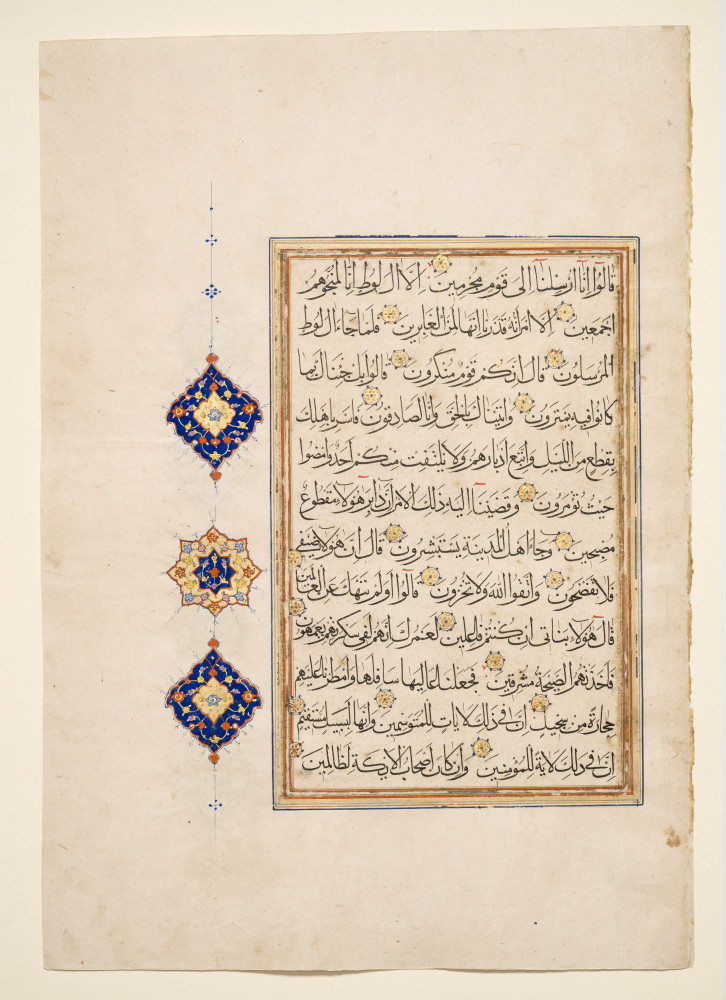 قالوا إنا أرسلنا إلى قوم مجرمين إلا آل لوط إنا لمنجوهم
أجمعين إلا امرأته قدرنا إنها لمن الغابرين فلما جاء آل لوط
المرسلون قال إنكم قوم منكرون قالوا بل جئناك بما
كانوا فيه يمترون وأتيناك بالحق وإنا لصادقون فأسر بأهلك
بقطع من الليل واتبع أدبارهم ولا يلتفت منكم أحد وامضوا
حيث تؤمرون وقضينا إليه ذلك الأمر أن دابر هؤلاء مقطوع
مصبحين وجاء أهل المدينة يستبشرون قال إن هؤلاء ضيفي
فلا تفضحون واتقوا الله ولا تخزون قالوا أولم ننهك عن العالمين
قال هؤلاء بناتي إن كنتم فاعلين لعمرك إنهم لفي سكرتهم يعمهون
فأخذتهم الصيحة مشرقين فجعلنا عاليها سافلها وأمطرنا عليهم
حجارة من سجيل إن في ذلك لآيات للمتوسمين وإنها لبسبيل مقيم
إن في ذلك لآية للمؤمنين وإن كان أصحاب الأيكة لظالمين